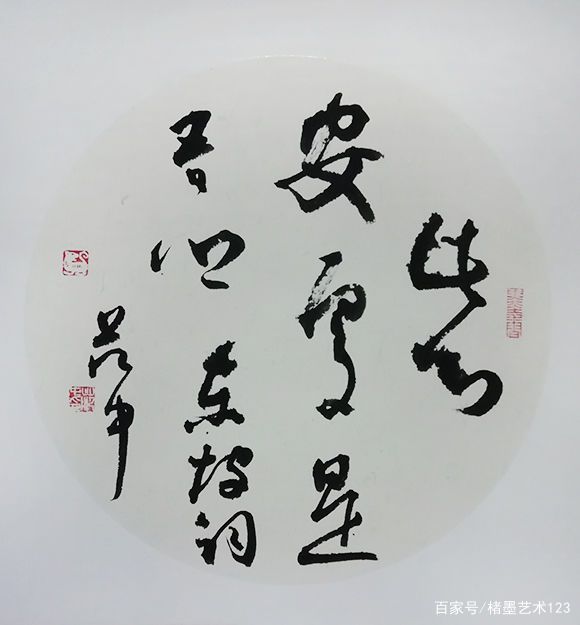 此心
安處是
吾鄉 東坡詞
百家号/楮墨艺术123